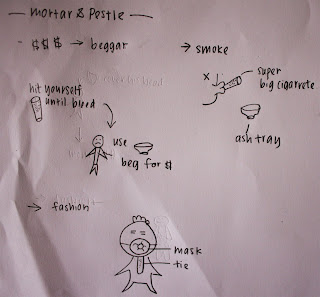 — mortar & Pestle —
- $$$ → beggar
→ smoke
hit yourself
until bleed
use
beg for $
x
super
big cigarrete
ash tray
→ fashion
mask
tie